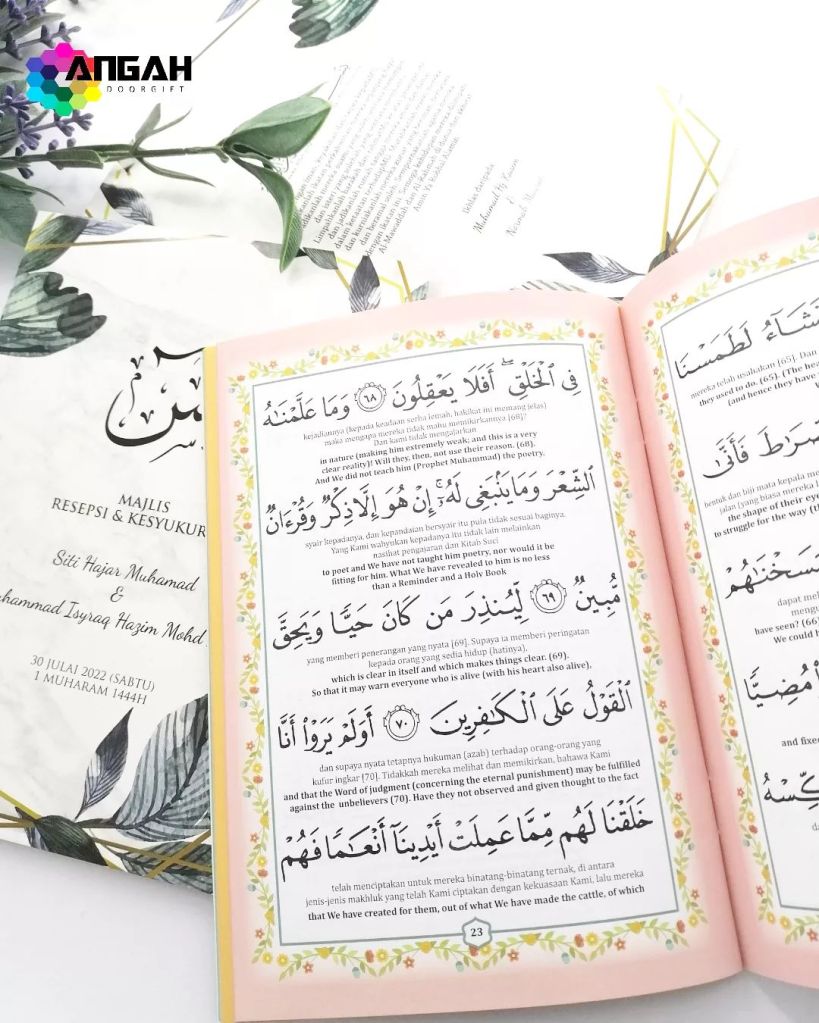 ANGAH
DOORGIFT
Ikhlas daripada
&
Al-Mawaddah dan Al-Rahmah di dunia dan akhirat.
Amin Ya Rabbal Alamin.
يس
MAJLIS
RESEPSI & KESYUKUR
Siti Hajar Muhamad
&
hammad Isyraq Hazim Mohd
30 JULAI 2022 (SABTU)
1 MUHARAM 1444H
فِي ٱلْخَلْقِ ۖ أَفَلَا يَعْقِلُونَ ٦٨ وَمَا عَلَّمْنَـٰهُ
kejadiannya (kepada keadaan serba lemah, hakikat ini memang jelas)
maka mengapa mereka tidak mahu memikirkannya [68]?
Dan kami tidak mengajarkan
in nature (making him extremely weak; and this is a very
clear reality)! Will they, then, not use their reason. (68).
And We did not teach him (Prophet Muhammad) the poetry,
ٱلشِّعْرَ وَمَا يَنۢبَغِى لَهُۥٓ ۚ إِنْ هُوَ إِلَّا ذِكْرٌ وَقُرْءَانٌ
syair kepadanya, dan kepandaian bersyair itu pula tidak sesuai baginya.
Yang Kami wahyukan kepadanya itu tidak lain melainkan
nasihat pengajaran dan Kitab Suci
to poet and We have not taught him poetry, nor would it be
fitting for him. What We have revealed to him is no less
than a Reminder and a Holy Book
مُّبِينٌ ٦٩ لِّيُنذِرَ مَن كَانَ حَيًّا وَيَحِقَّ
yang memberi penerangan yang nyata [69]. Supaya ia memberi peringatan
kepada orang yang sedia hidup (hatinya),
which is clear in itself and which makes things clear. (69).
So that it may warn everyone who is alive (with his heart also alive),
ٱلْقَوْلُ عَلَى ٱلْكَـٰفِرِينَ ٧٠ أَوَلَمْ يَرَوْا۟ أَنَّا
dan supaya nyata tetapnya hukuman (azab) terhadap orang-orang yang
kufur ingkar (70). Tidakkah mereka melihat dan memikirkan, bahawa Kami
and that the Word of judgment (concerning the eternal punishment) may be fulfilled
against the unbelievers (70). Have they not observed and given thought to the fact
خَلَقْنَا لَهُم مِّمَّا عَمِلَتْ أَيْدِينَآ أَنْعَـٰمًا فَهُمْ
telah menciptakan untuk mereka binatang-binatang ternak, di antara
jenis-jenis makhluk yang telah Kami ciptakan dengan kekuasaan Kami, lalu mereka
that We have created for them, out of what We have made the cattle, of which
23
نَشَآءُ لَطَمَسْنَا
mereka telah usahakan [65]. Dan
they used to do. (65). (The hea
(and hence they have
صِّرَٰطَ فَأَنَّىٰ
bentuk dan biji mata kepala me
jalan (yang biasa mereka l
the shape of their eye
to struggle for the way (th
سَخْنَـٰهُمْ
dapat mel
mengu
have seen? (66)
We could h
مُضِيًّا
and fixed
كِّسْهُ